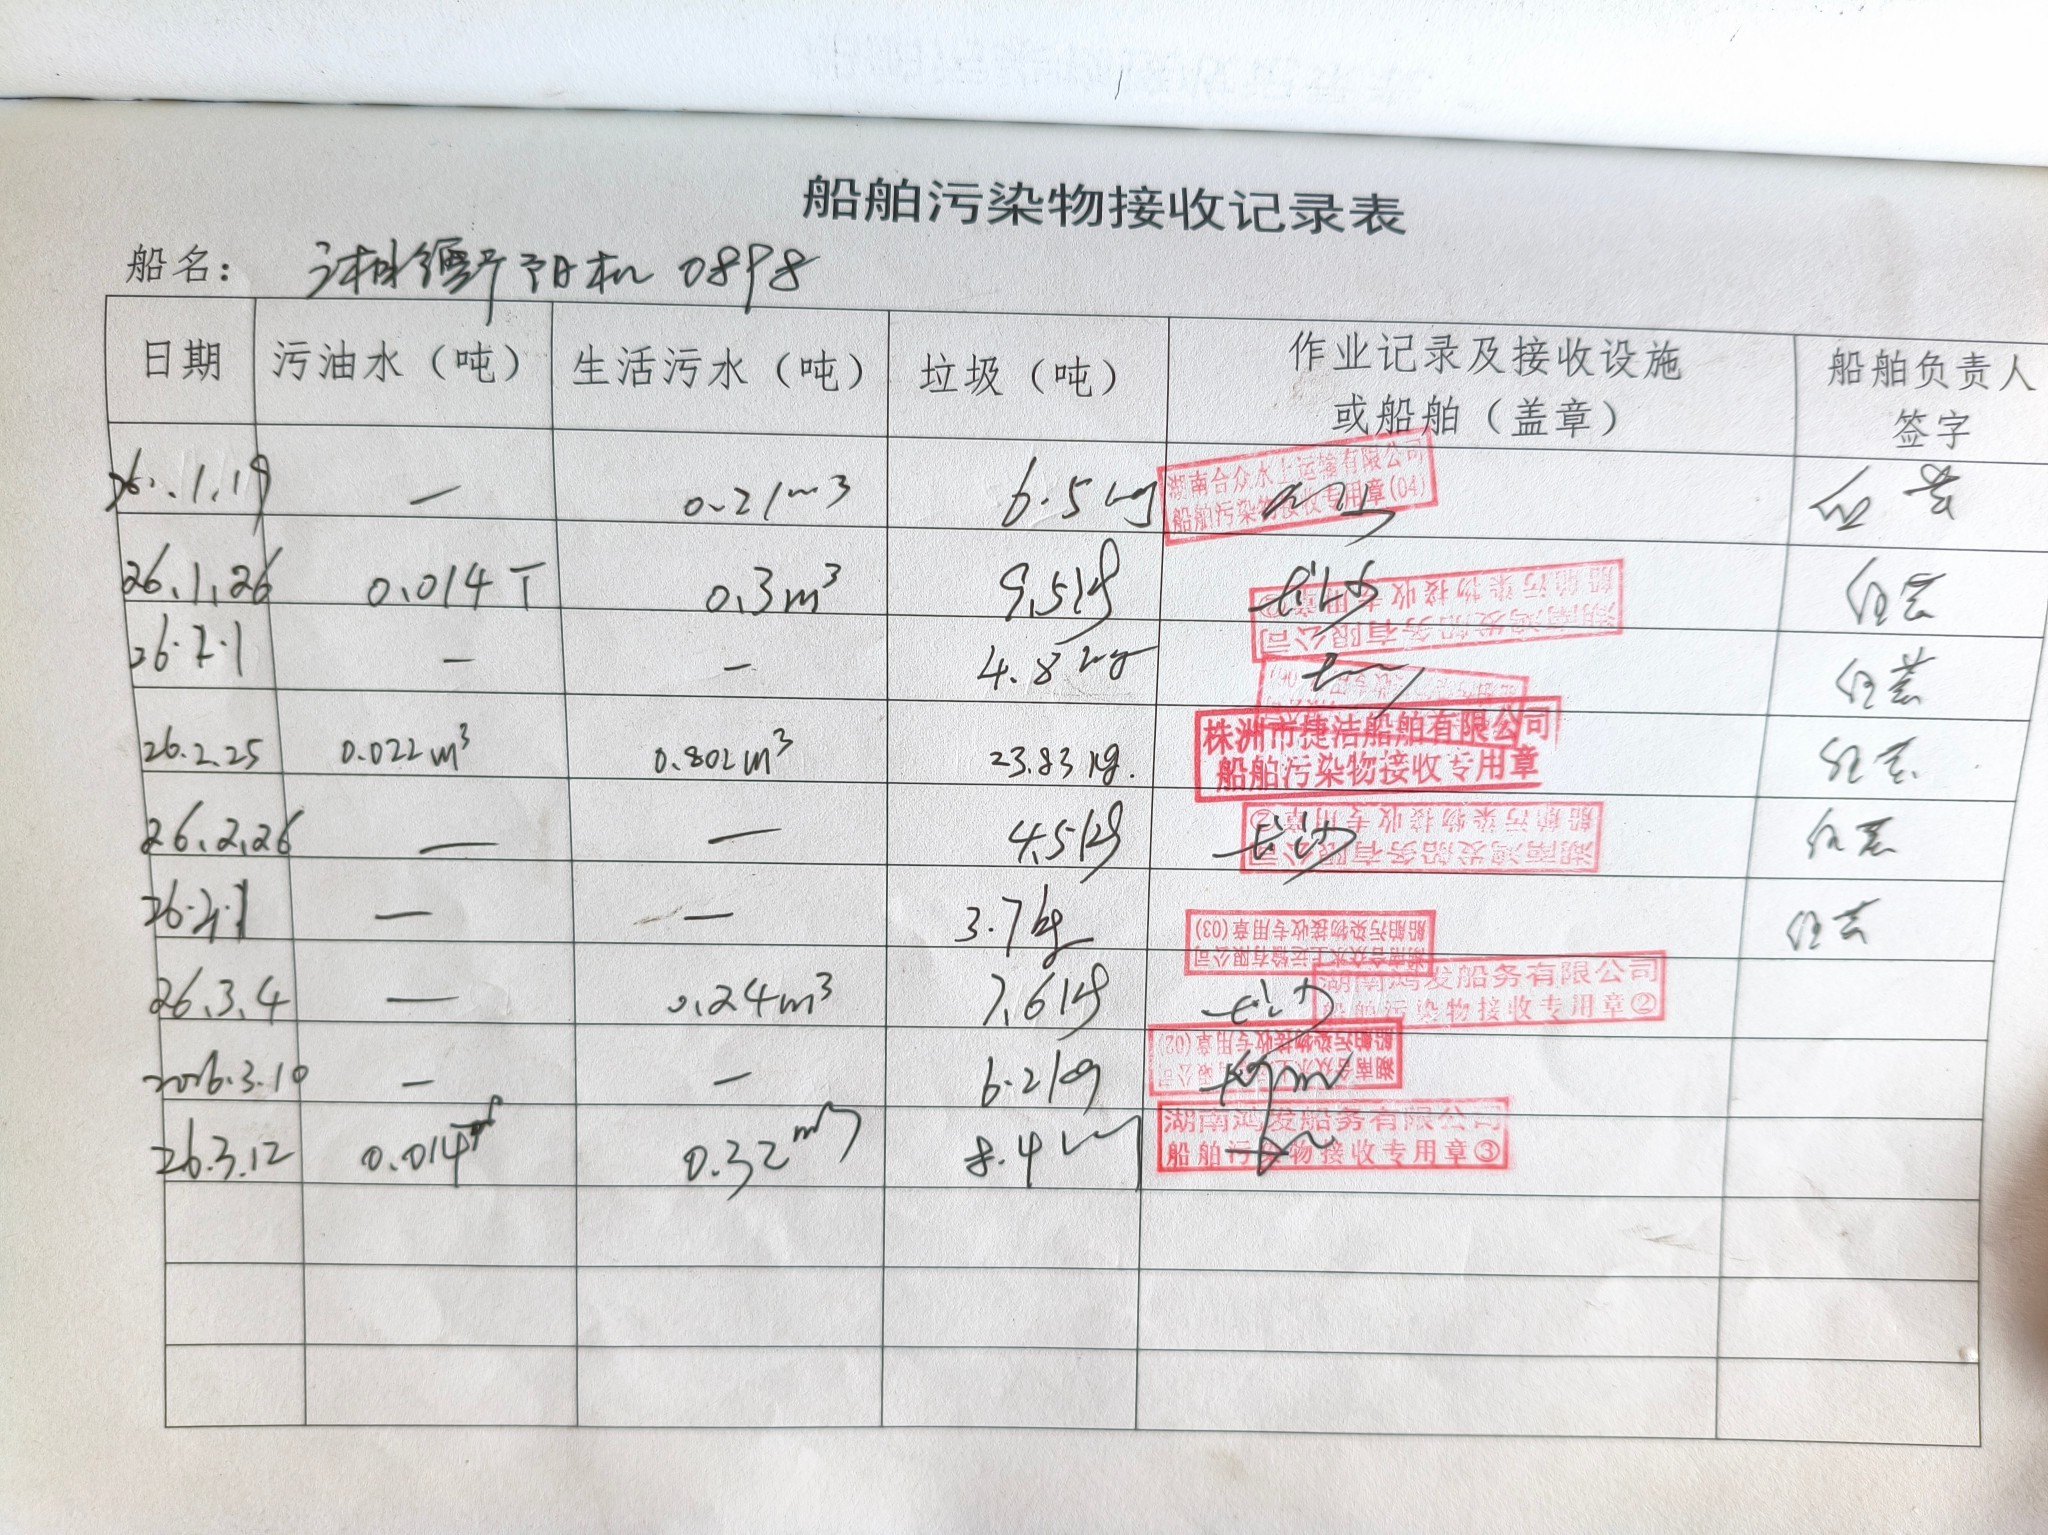 船舶污染物接收记录表
船名： 0898
日期 污油水（吨） 生活污水（吨） 垃圾（吨） 作业记录及接收设施或船舶（盖章） 船舶负责人签字
26.1.19 — 0.21m³ 6.5kg 湖南合众水上运输有限公司 船舶污染物接收专用章(04)
26.1.26 0.014T 0.3m³ 9.5kg 长沙 湖南鸿发船务有限公司 船舶污染物接收专用章③
26.2.1 — — 4.8kg
26.2.25 0.022m³ 0.802m³ 23.83kg. 株洲市捷洁船舶有限公司 船舶污染物接收专用章
26.2.26 — — 4.5kg 长沙 湖南鸿发船务有限公司 船舶污染物接收专用章②
— — 3.7kg 湖南合众水上运输有限公司 船舶污染物接收专用章(03)
26.3.4 — 0.24m³ 7.6kg 长沙 湖南鸿发船务有限公司 船舶污染物接收专用章②
2026.3.10 — — 6.2kg 湖南合众水上运输有限公司 船舶污染物接收专用章(02)
26.3.12 0.014 0.32m³ 8.4 湖南鸿发船务有限公司 船舶污染物接收专用章③